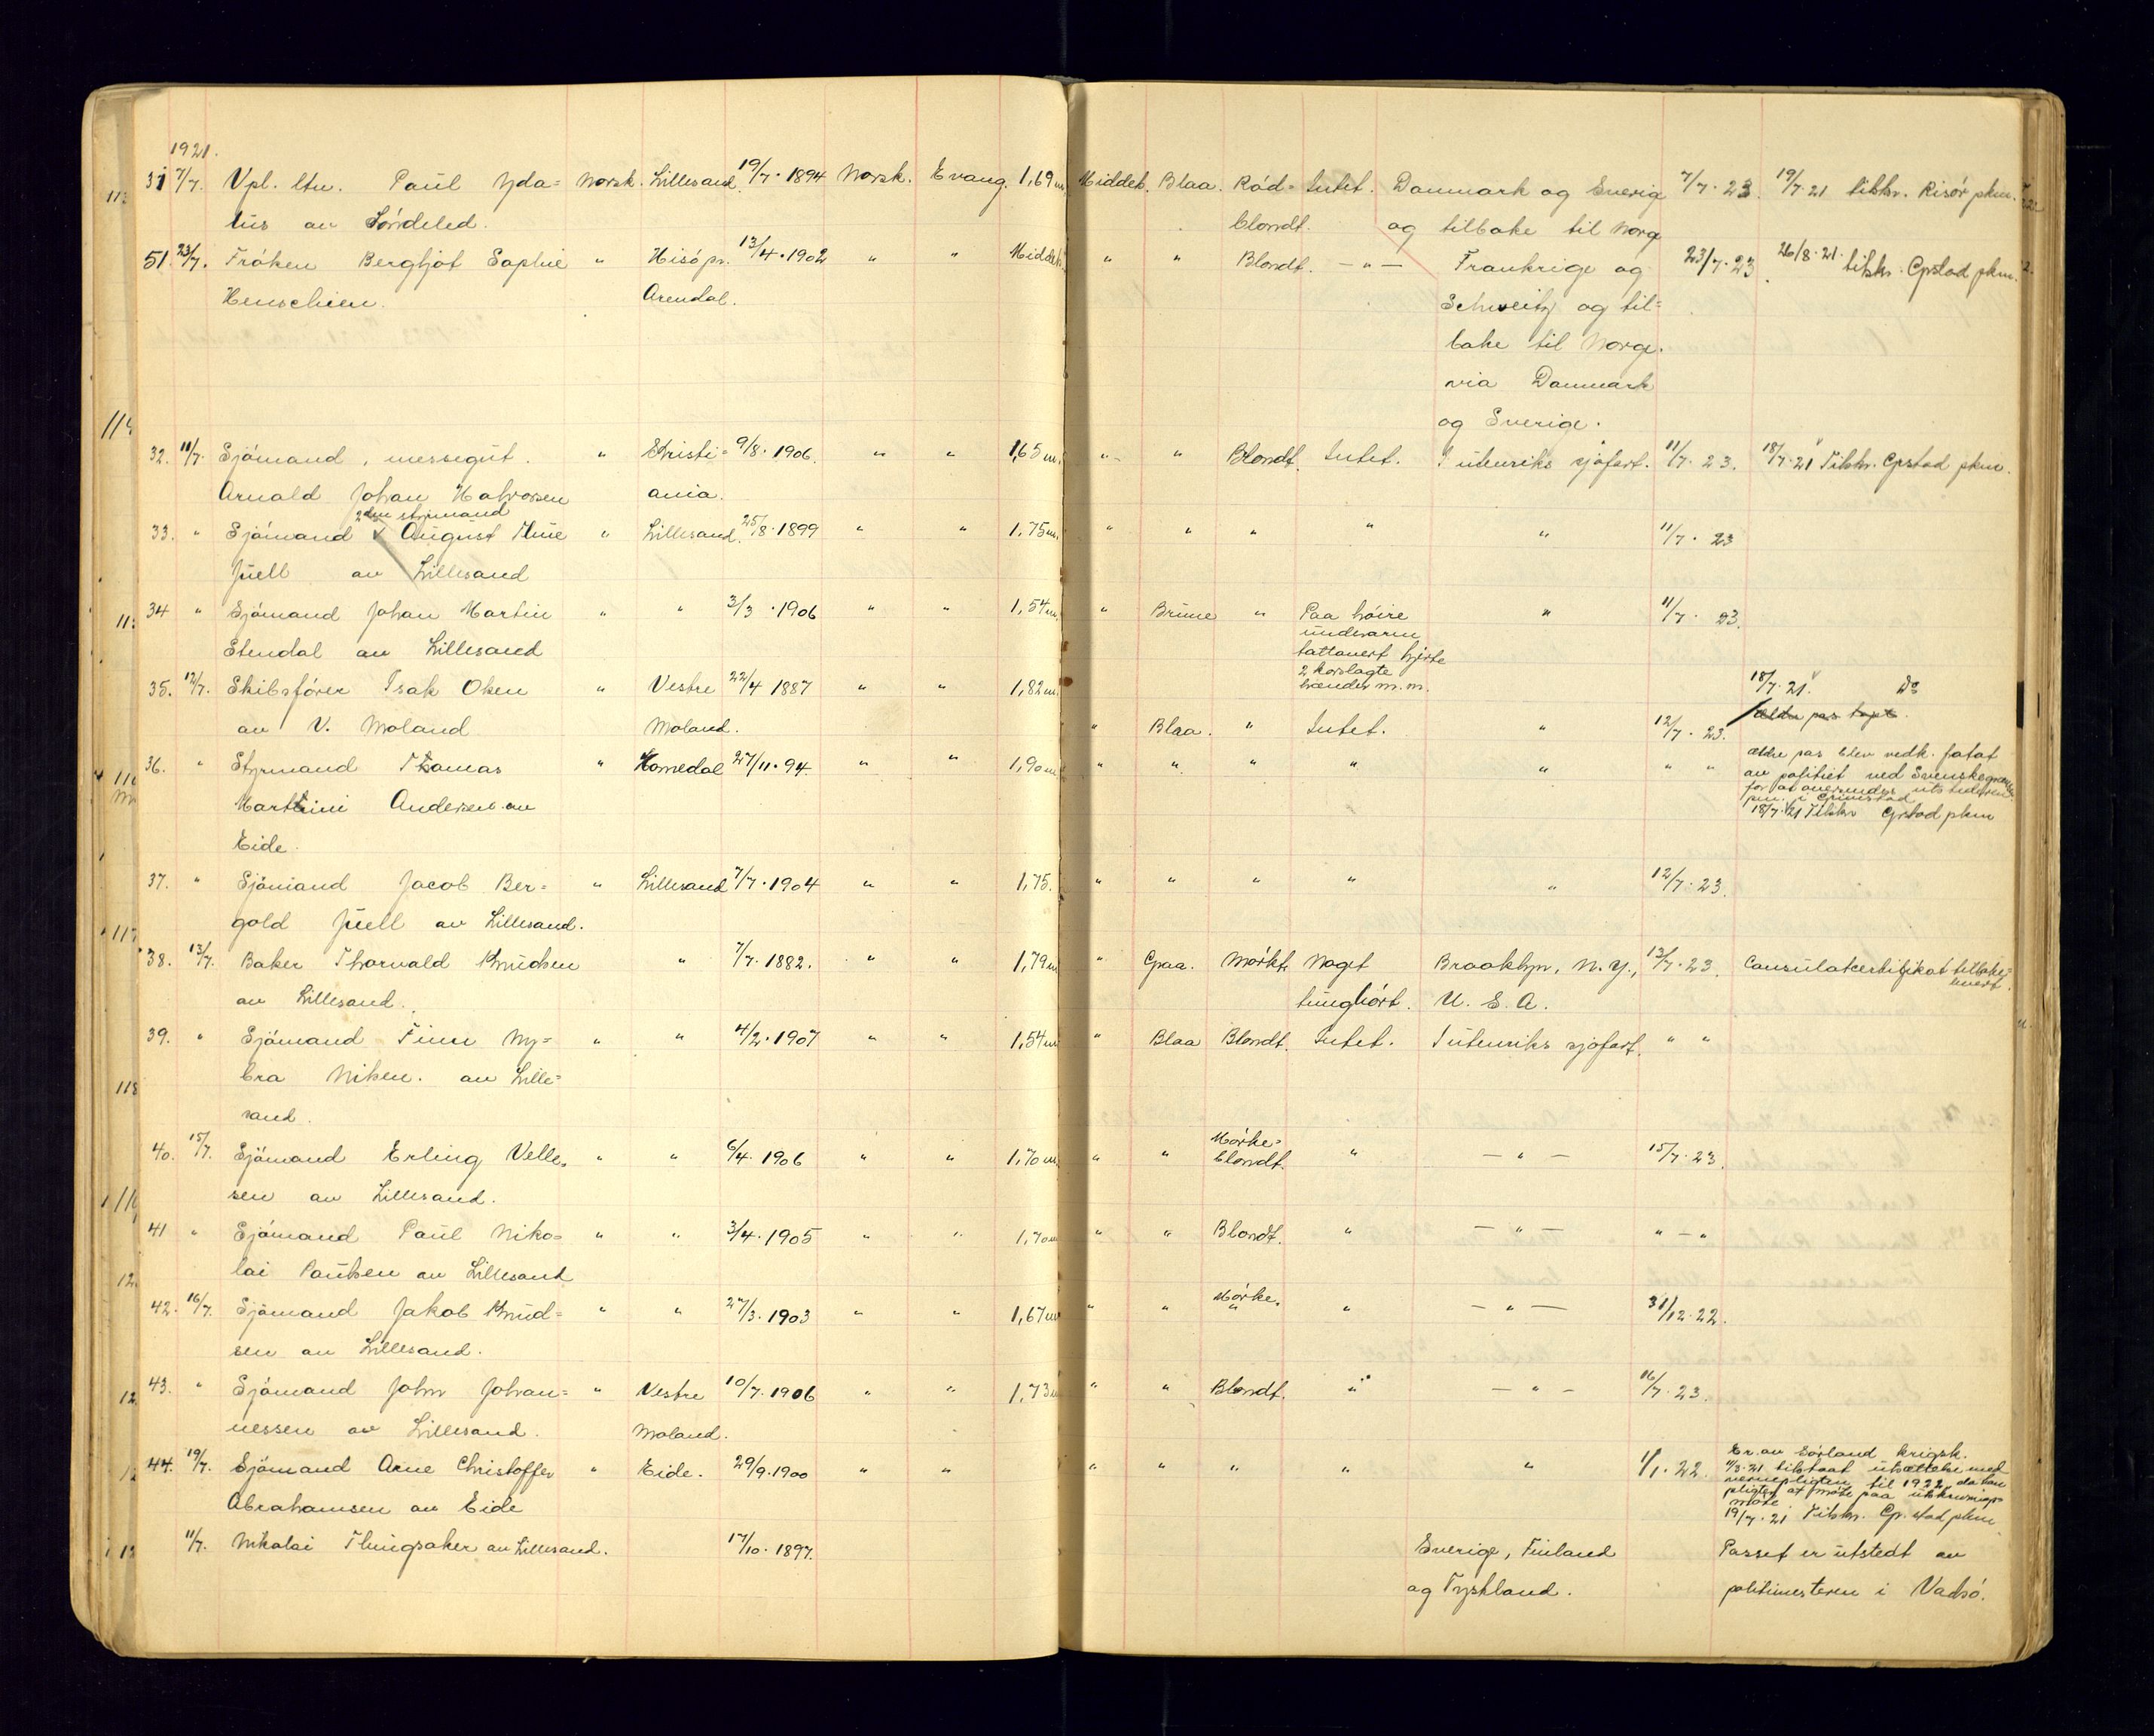 1921.
31 7/7. Vpl. ltn. Paul Yda= Norsk. Lillesand. 19/7. 1894 Norsk. Evang. 1,69 m. Middels. Blaa. Rød= Intet. Danmark og Sverig 7/7. 23. 19/7. 21 tilskr. Risör pkm.
lius av Söndeled. blondt. og tilbake til Norge
51. 23/7. Fröken Bergljot Sophie " Hisö pr. 13/4. 1902 " " Middels. " " Blondt. — " — Frankrige og 23/7. 23. 26/8. 21. tilskr. Grstad pkm.
Henschien. Arendal. Schweitz og til=
bake til Norge.
via Danmark
og Sverige.
32. 11/7. Sjömand, messegut. " Kristi= 9/8. 1906. " " 1,65 m. " " Blondt. Intet. I utenriks sjöfart. 11/7. 23. 18/7. 21 Tilskr. Grstad pkm.
Arnald Johan Halvorsen ania.
2den styrmand
33. " Sjömand August Thue " Lillesand. 25/8. 1899 " " 1,75 m. " " " " " 11/7. 23
Juell av Lillesand
34 " Sjömand Johan Martin " " 3/3. 1906 " " 1,54 m. " Brune " Paa höire " 11/7. 23.
Stendal av Lillesand underarm
tattovert hjerte
2 korslagte
hænder m. m.
35. 12/7. Skibsförer Isak Olsen " Vestre 22/4 1887 " " 1,82 m. 18/7. 21. Do
av V. Moland Moland. " Blaa. " Intet. " 12/7. 23. ældre pas tapt.
36. " Styrmand Thomas " Homedal 27/11. 94. " " 1,90 m. " " " " " " " ældre pas blev vedk. fratat
Martini Andersen av av politiet ved Svenskegrænsen
Eide. for at oversendes utstederen
pm. i Grimstad
18/7. 21 Tilskr Grstad pkm
37. " Sjömand Jacob Ber= " Lillesand 7/7. 1904 " " 1,75. " " " " " 12/7. 23.
gold Juell av Lillesand.
38. 13/7. Baker Thorvald Knudsen " 7/7. 1882. " " 1,79 m " Graa. Mörkt. Noget Brooklyn, N. Y., 13/7. 23. Consulatcertifikat tilbake=
av Lillesand. tunghört. U. S. A. levert.
39. " Sjömand Finn Ny= " " 4/2. 1907 " " 1,54 m " Blaa Blondt. Intet. I utenriks sjöfart. " "
bra Nilsen. av Lille=
sand.
40. 15/7. Sjömand Erling Velle= " " 6/4. 1906 " " 1,70 m. " " Mörke= " — " — 15/7. 23.
sen av Lillesand. blondt.
41 " Sjömand Paul Niko= " " 3/4. 1905 " " 1,70 m " " Blondt. " — " — " — "
lai Paulsen av Lillesand
42. 16/7. Sjömand Jakob Knud= " " 27/3. 1903 " " 1,67 m " " Mörke= " — " — 31/12. 22.
sen av Lillesand. "
43. " Sjömand John Johan= " Vestre 10/7. 1906 " " 1,73 m " " Blondt. " — " — 16/7. 23.
nessen av Lillesand. Moland.
44. 19/7. Sjömand Arne Christoffer " Eide. 29/9. 1900 " " " " " " " 1/1. 22. Er av Sörland krigsk.
Abrahamsen av Eide 11/3. 21 tilstaat utsættelse med
vernepligten til 1922, da han
pligter at möte paa utskrivnings=
möte
19/7. 21 Tilskr. Gr. stad pkm
11/7. Nikolai Thingsaker av Lillesand. 17/10. 1897. Sverige, Finland Passet er utstedt av
og Tyskland. politimesteren i Vadsö.